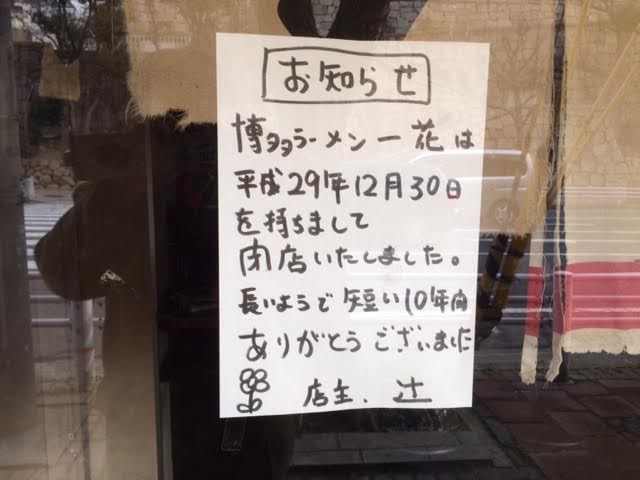 お知らせ
博多ラーメン一花は
平成29年12月30日
を持ちまして
閉店いたしました。
長いようで短い10年間
ありがとうございました
店主、辻